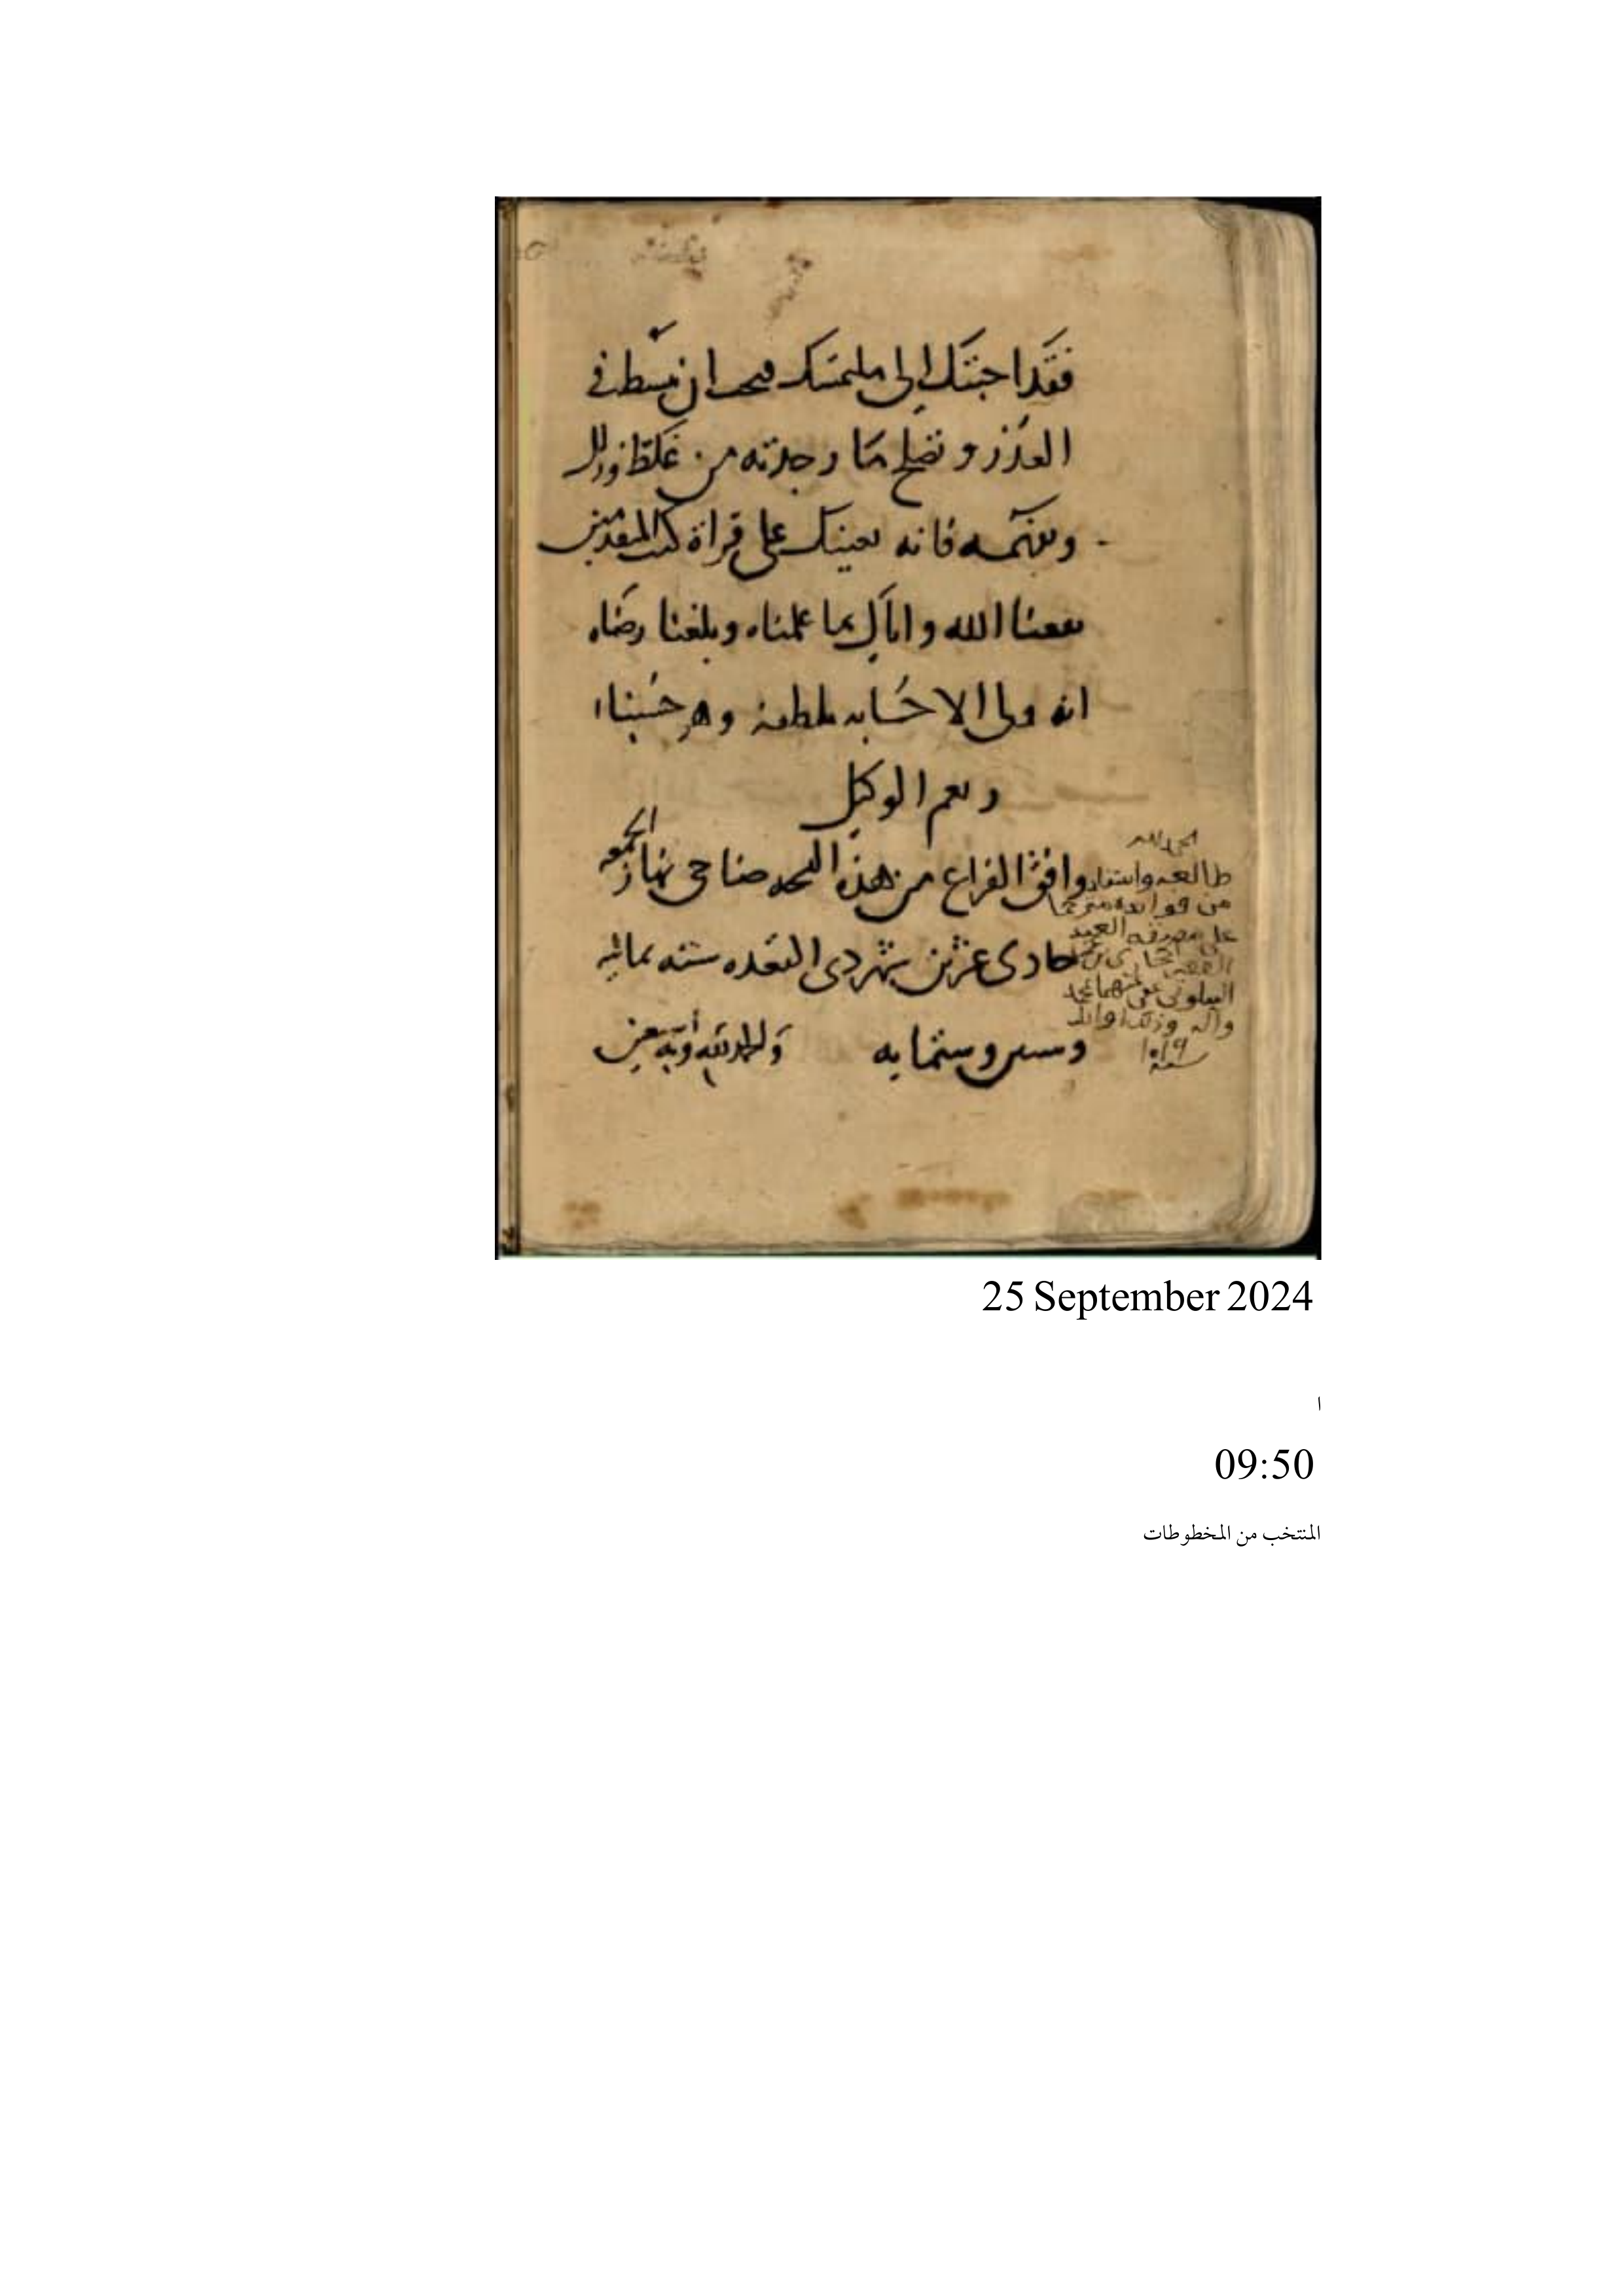 فقد اجبتك الى ملتمسك فيجب ان تبسط في
العذر وتصلح ما وجدته من غلط وزلل
وتفهمه فانه يعينك على قراة كتب المتقدمين
نفعنا الله واياك بما علمناه وبلغنا رضاه
انه ولى الاجابه بلطفه وهو حسبنا
ونعم الوكيل
وافق الفراغ من هذه النسخه ضاحى نهار الجمعه
حادى عشرين شهر ذى القعده سنه ثمانيه
وستين وستمايه ولله الحمد وبه نستعين
الحمد لله
طالعه واستفاد
من فوائده مترحما
على مصنفه العبد
الفقير
البيلونى عفى عنهما بمحمد
واله وذلك اوائل
سنة ١٠١٩
25 September 2024
ا
09:50
المنتخب من المخطوطات